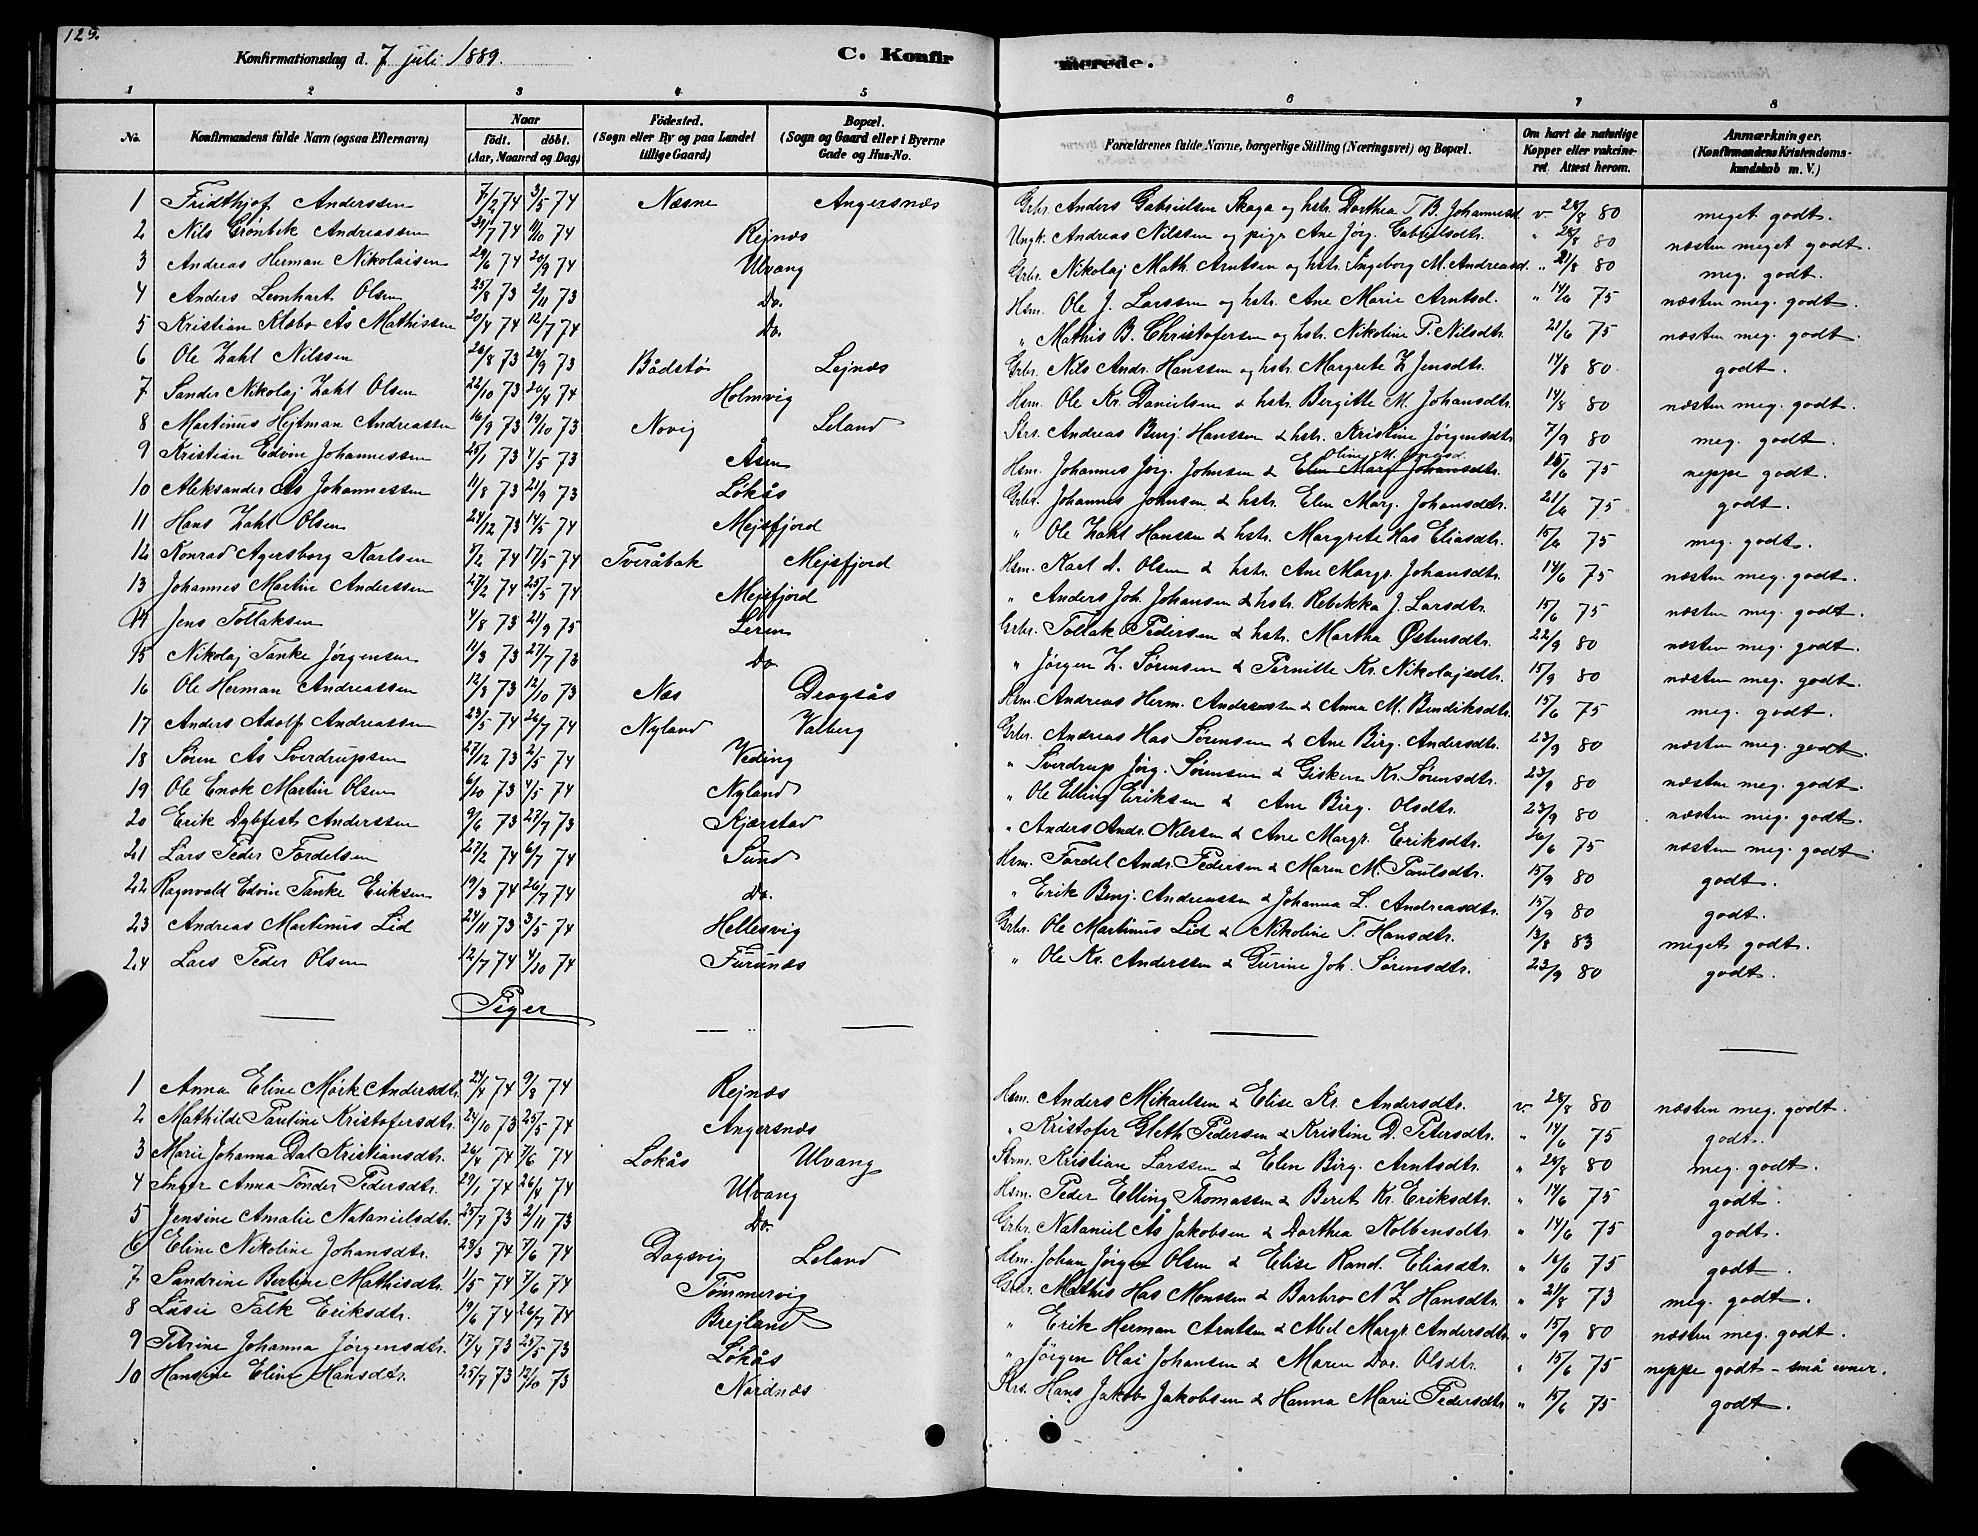 125.
Konfirmationsdag d. 7 juli 1889.
C. Konfirmerede.
1 2 3 4 5 6 7 8
No. Konfirmandens fulde Navn (ogsaa Efternavn) Naar födt. döbt. (Aar, Maaned og Dag) Födested. (Sogn eller By og paa Landet tillige Gaard) Bopæl. (Sogn og Gaard eller i Byerne Gade og Hus-No. Forældrenes fulde Navne, borgerlige Stilling (Næringsvei) og Bopæl. Om havt de naturlige Kopper eller vakcineret Attest herom. Anmærkninger. (Konfirmandens Kristendomskundskab m. V.)
1 Fridthjof Anderssen 7/2 74 3/5 74 Næsne Angersnæs Grbr. Anders Gabrielsen Skaga og hstr. Dorthea T B. Johannesd. v. 28/8 80 meget godt.
2 Nils Grönbek Andreassen 30/7 74 11/10 74 Rejnæs Ungk. Andreas Nilssen og pige Ane Jörg. Gabrielsdtr. " 28/8 80 næsten meget godt.
3 Andreas Herman Nikolaisen 29/6 74 20/9 74 Ulvang Grbr. Nikolaj Math. Arntsen og hstr. Ingeborg M. Andreasd. " 21/8 80 meg. godt.
4 Anders Leonhart Olsen 25/8 73 2/11 73 Do. Hsm. Ole J. Larssen og hstr. Ane Marie Arntsd. " 14/6 75 næsten meg. godt.
5 Kristian Klæbo Ås Mathissen 20/4 74 12/7 74 Do. " Mathis B. Christofersen og hstr. Nikoline P. Nilsdtr. 21/6 75 næsten meg. godt.
6 Ole Zahl Nilssen 26/8 73 28/9 73 Bådstø Lejnæs Grbr. Nils Andr. Hanssen og hstr. Margrete Z Jensdtr. 14/8 80 godt.
7 Sander Nikolaj Zahl Olsen 22/10 73 20/4 74 Holmvig Hsm. Ole Kr. Danielsen & hstr. Bergitte M. Johansdtr. 14/8 80 næsten meg. godt.
8 Martinus Hejtman Andreassen 16/9 73 19/10 73 Novig Leland Strs. Andreas Benj Hanssen & hstr. Kristine Jörgensdtr. 7/9 80 meg. godt.
9 Kristian Edvin Johannessen 25/1 73 4/5 73 Åsen Hsm. Johannes Jörg. Johnsen & Elen Marg Johansdtr. 15/6 75 neppe godt.
10 Aleksander Ås Johannessen 11/8 73 21/9 73 Løkås Grbr. Johannes Johnsen & hstr. Elen Marg. Johansdtr. 21/6 75 godt.
11 Hans Zahl Olsen 24/12 73 14/5 74 Mejsfjord " Ole Zahl Hanssen & hstr. Margrete Has Eliasdtr. 15/6 75 meg. godt.
12 Konrad Agersborg Karlsen 8/2 74 17/5 74 Tveråbak Mejsfjord Hsm. Karl A. Olsen & hstr. Ane Margr. Johansdtr. 14/6 75 næsten meg. godt.
13 Johannes Martin Anderssen 27/2 74 25/5 74 Mejsfjord " Anders Joh. Johansen & hstr. Rebekka J. Larsdtr. 15/6 75 næsten meg. godt.
14 Jens Tollaksen 4/8 73 21/9 75 Leren Grbr. Tollak Pedersen & hstr. Martha Østensdtr. 22/9 80 næsten meg. godt.
15 Nikolaj Tanke Jörgensen 11/3 73 27/7 73 Do. " Jörgen Z. Sörensen & Pernille Kr. Nikolajsdtr. 15/9 80 næsten meg. godt.
16 Ole Herman Andreassen 12/3 73 12/10 73 Næs Dragsås Hsm. Andreas Herm. Andreassen & Anna M. Bendiksdtr. 15/6 75 meg. godt.
17 Anders Adolf Andreassen 23/5 74 26/7 74 Nyland Valberg Grbr. Andreas Has Sörensen & Ane Birg. Andersdtr. 23/9 80 næsten meg. godt.
18 Sören Ås Sverdrupsen 27/12 73 2/5 74 Veding " Sverdrup Jörg. Sörensen & Gisken Kr. Sörensdtr. 23/9 80 næsten meg. godt.
19 Ole Enok Martin Olsen 6/10 73 4/5 74 Nyland " Ole Elling Eriksen & Ane Birg. Olsdtr. 23/9 80 næsten meg. godt.
20 Erik Dybfest Anderssen 9/6 73 27/7 73 Kjærstad " Anders Andr. Nilssen & Ane Margr. Eriksdtr. 26/6 75 næsten meg. godt.
21 Lars Peder Tordelsen 27/2 74 6/7 74 Sund Hsm. Tordel Andr. Pedersen & Maren M. Paulsdtr. 15/9 80 godt.
22 Ragnvald Edvin Tanke Eriksen 19/3 74 26/7 74 Do. " Erik Benj. Andreassen & Johanna L. Andreasdtr. 15/9 80 godt.
23 Andreas Martinus Lid 24/11 73 3/5 74 Hellesvig Grbr. Ole Martinus Lid & Nikoline T. Hansdtr. 13/8 83 meget godt.
24 Lars Peder Olsen 12/7 74 4/10 74 Furunæs " Ole Kr. Anderssen & Gurine Joh. Sörensdtr. 23/9 80 godt.
Piger
1 Anna Eline Mörk Andersdtr. 24/4 74 9/8 74 Rejnæs Hsm. Anders Mikaelsen & Elise Kr. Andersdtr. v. 28/8 80 næsten meg. godt.
2 Mathilde Pauline Kristofersdtr. 24/10 73 25/5 74 Angersnæs " Kristofer Gleth Pedersen & Kristine D. Petersdtr. " 14/6 75 godt.
3 Marie Johanna Dal Kristiansdtr. 26/4 74 7/6 74 Løkås Ulvang Strm. Kristian Larssen & Elen Birg. Arntsdtr. " 28/8 80 meg. godt.
4 Inger Anna Tönder Pedersdtr. 29/1 74 26/4 74 Ulvang Hsm. Peder Elling Thomassen & Beret Kr. Eriksdtr. " 14/6 75 godt.
5 Jensine Amalie Natanielsdtr. 25/7 73 2/11 73 Do. Grbr. Nataniel Ås Jakobsen & Dorthea Kolbensdtr. " 14/6 75 godt.
6 Eline Nikoline Johansdtr. 28/3 74 7/6 74 Dagsvig Leland Hsm. Johan Jörgen Olsen & Elise Rand. Eliasdtr. " 16/6 75 godt.
7 Sandrine Bertine Mathisdtr. 1/5 74 7/6 74 Tömmervig Grbr. Mathis Has Monssen & Barbro N Z Hansdtr. " 21/8 73 meg. godt.
8 Lusie Falk Eriksdtr. 19/6 74 26/7 74 Brejland " Erik Herman Arntsen & Abel Margr. Andersdtr. " 15/9 80 næsten meg. godt.
9 Petrine Johanna Jörgensdtr. 17/4 73 25/5 73 Løkås " Jörgen Olai Johansen & Maren Dor. Olsdtr. " 15/6 75 neppe godt - små evner.
10 Hansine Eline Hansdtr. 25/7 73 12/10 73 Nordnæs Strs. Hans Jakob Jakobsen & Hanna Marie Pedersdtr. " 15/6 75 godt.